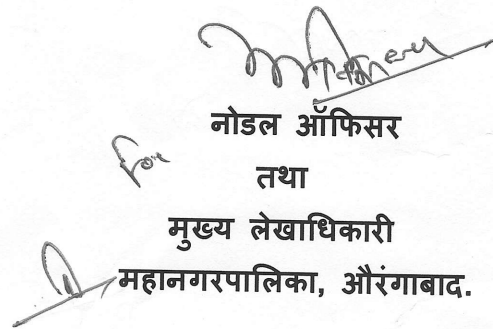 नोडल ऑफिसर
for
तथा
मुख्य लेखाधिकारी
महानगरपालिका, औरंगाबाद.